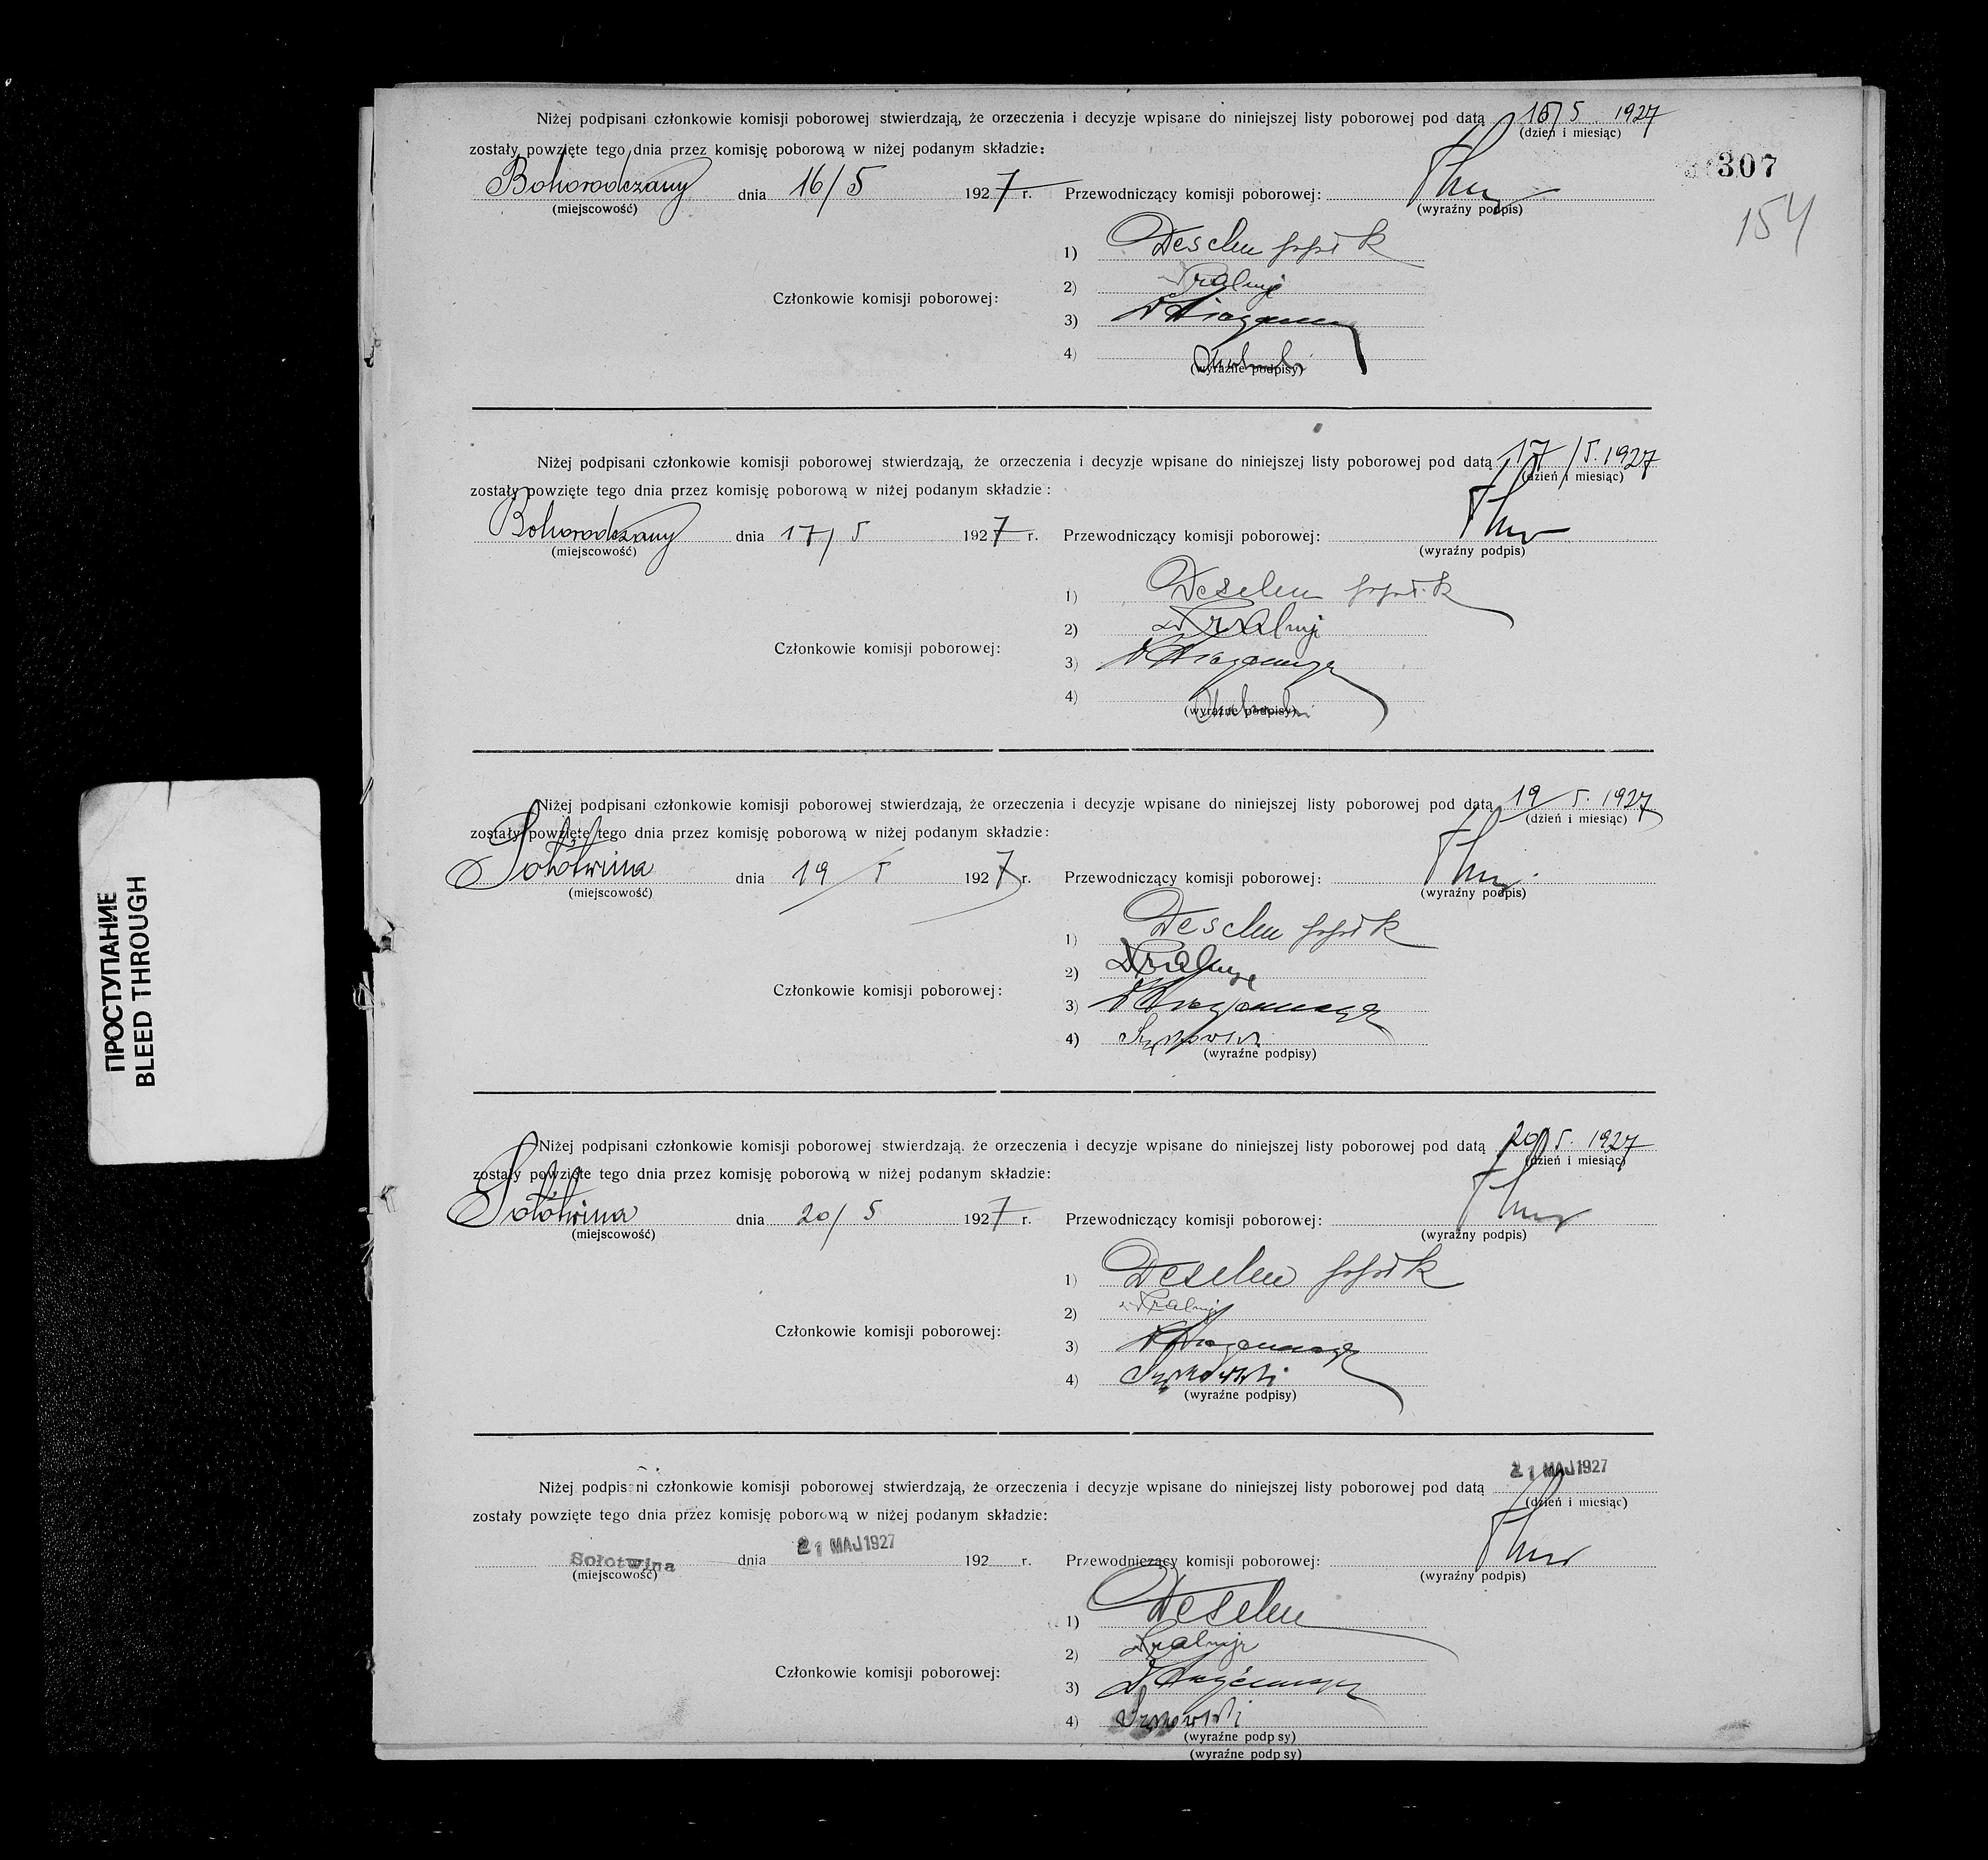 Niżej podpisani członkowie komisji poborowej stwierdzają, że orzeczenia i decyzje wpisane do niniejszej listy poborowej pod datą 16/5 1927
(dzień i miesiąc)
307
zostały powzięte tego dnia przez komisję poborową w niżej podanym składzie:
154
Bohorodczany dnia 16/5 1927 r. Przewodniczący komisji poborowej:
(miejscowość) (wyraźny podpis)
1)
2)
Członkowie komisji poborowej:
3)
4)
(wyraźne podpisy)
Niżej podpisani członkowie komisji poborowej stwierdzają, że orzeczenia i decyzje wpisane do niniejszej listy poborowej pod datą 17/5. 1927
(dzień i miesiąc)
zostały powzięte tego dnia przez komisję poborową w niżej podanym składzie:
Bohorodczany dnia 17/5 1927 r. Przewodniczący komisji poborowej:
(miejscowość) (wyraźny podpis)
1)
2)
Członkowie komisji poborowej:
3)
4)
(wyraźne podpisy)
Niżej podpisani członkowie komisji poborowej stwierdzają, że orzeczenia i decyzje wpisane do niniejszej listy poborowej pod datą 19/5. 1927
(dzień i miesiąc)
zostały powzięte tego dnia przez komisję poborową w niżej podanym składzie:
Sołotwina dnia 19/5 1927 r. Przewodniczący komisji poborowej:
(miejscowość) (wyraźny podpis)
1)
2)
Członkowie komisji poborowej:
3)
4)
(wyraźne podpisy)
ПРОСТУПАНИЕ
BLEED THROUGH
Niżej podpisani członkowie komisji poborowej stwierdzają. że orzeczenia i decyzje wpisane do niniejszej listy poborowej pod datą 20/5. 1927
(dzień i miesiąc)
zostały powzięte tego dnia przez komisję poborową w niżej podanym składzie:
Sołotwina dnia 20/5 1927 r. Przewodniczący komisji poborowej:
(miejscowość) (wyraźny podpis)
1)
2)
Członkowie komisji poborowej:
3)
4)
(wyraźne podpisy)
21 MAJ 1927
Niżej podpisani członkowie komisji poborowej stwierdzają, że orzeczenia i decyzje wpisane do niniejszej listy poborowej pod datą
(dzień i miesiąc)
zostały powzięte tego dnia przez komisję poborową w niżej podanym składzie:
Sołotwina dnia 21 MAJ 1927 192 r. Przewodniczący komisji poborowej:
(miejscowość) (wyraźny podpis)
1)
2)
Członkowie komisji poborowej:
3)
4)
(wyraźne podp sy)
(wyraźne podp sy)